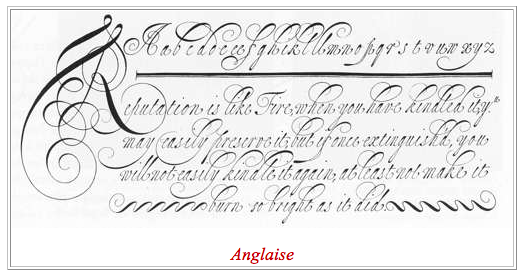 A a b c d e e f g h i k l l l m n o p q r s t v u w x y z
Reputation is like Fire, when you have kindled it, y.
may easily preserve it, but if once extinguish'd, you
will not easily kindle it again, at least not make it
burn so bright as it did.
Anglaise